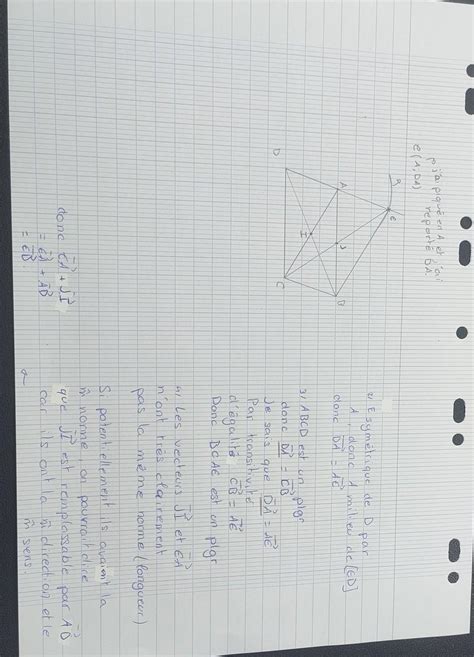 ↱ J'ai piqué en A et j'ai
reporté DA.
C(A, DA)
E
A
D
J
I
B
C
2) E symétrique de D par
A, donc A milieu de [ED]
donc DA = AE
3) ABCD est un plgr
donc DA = CB
Je sais que DA = AE
Par transitivité
d'égalité CB = AE
Donc BCAE est un plgr
4) Les vecteurs JI et EA
n'ont très clairement
pas la même norme (longueur)
Si potentiellement ils avaient la
m̂ norme, on pourrait dire
que JI est remplassable par AB
car ils ont la m̂ direction et le
m̂ sens.
donc EA + JI
= EA + AB
= EB.